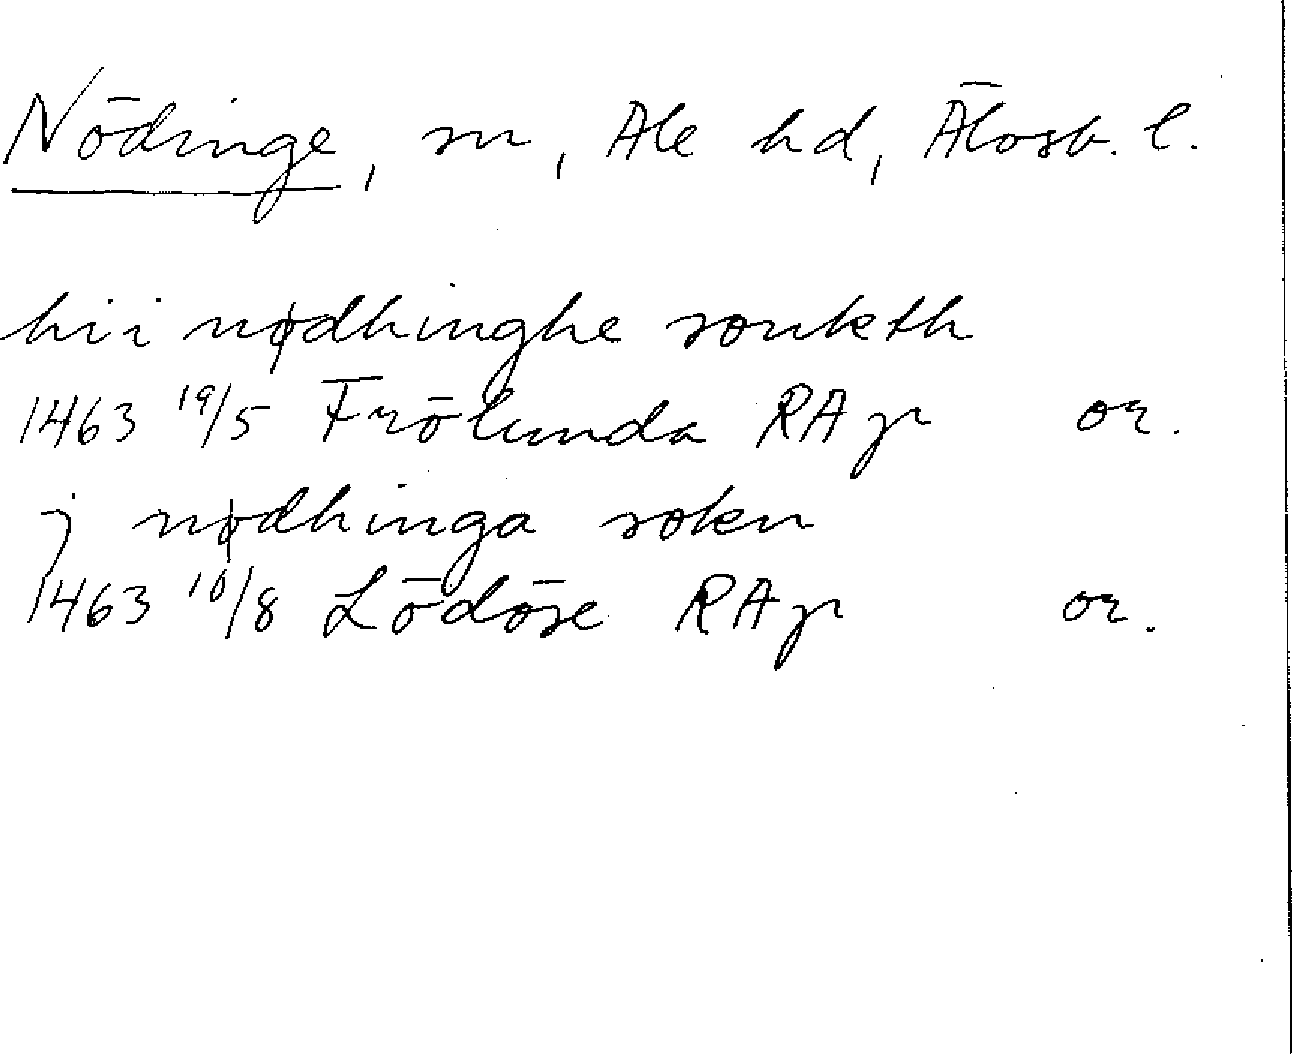 Nödinge, sn, Ale hd, Älvsb. l.
hii nødhinghe sonkth
1463 19/5 Frölunda RAp or.
j nødhinga sokn
1463 10/8 Lödöse RAp or.